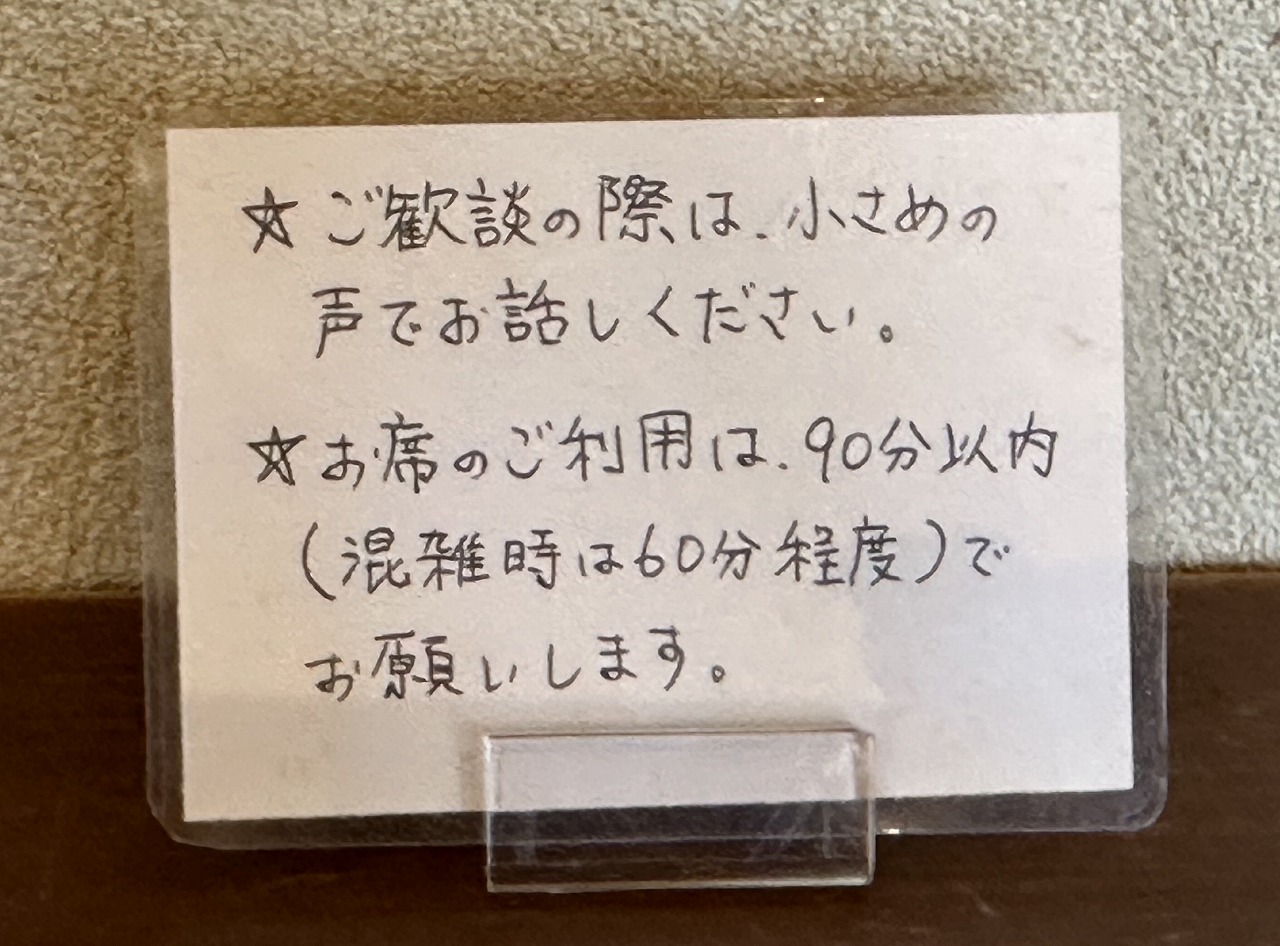 ☆ご歓談の際は、小さめの
声でお話しください。
☆お席のご利用は、90分以内
(混雑時は60分程度)で
お願いします。